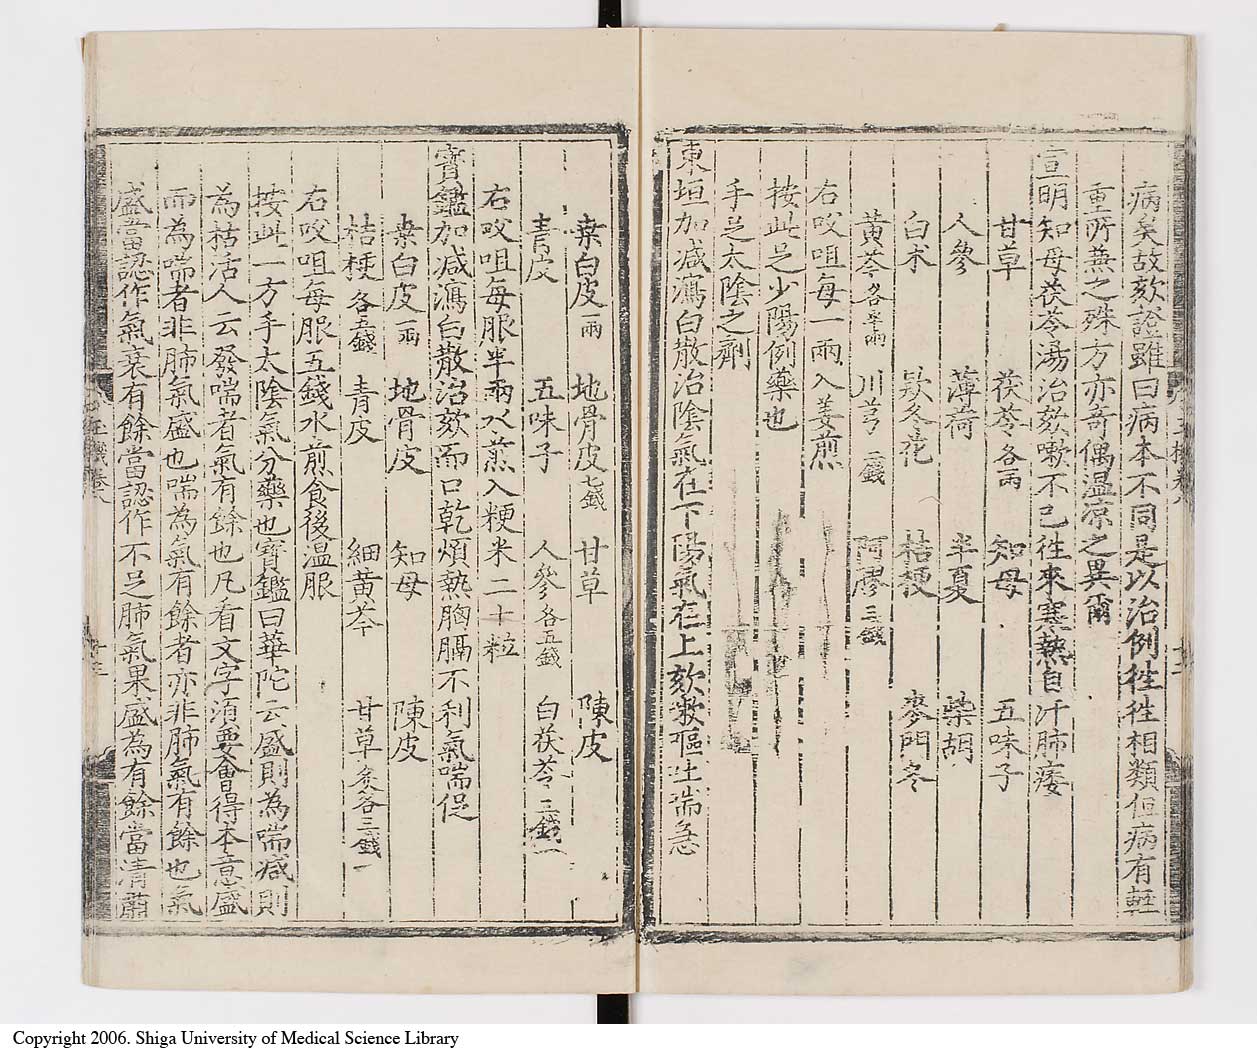 病矣故欬證雖曰病本不同是以治例徃徃相類但病有輕
重所兼之殊方亦奇偶温凉之異爾
宣明知母茯苓湯治欬嗽不已徃來寒熱自汗肺痿
甘草 茯苓各一兩 知母 五味子
人參 薄荷 半夏 柴胡
白朮 欵冬花 桔梗 麥門冬
黃芩各半兩 川芎二錢 阿膠三錢
右㕮咀每一兩入姜煎
按此足少陽例藥也
手足太陰之劑
東垣加减瀉白散治陰氣在下陽氣在上欬嗽嘔吐喘急
桒白皮一兩 地骨皮七錢 甘草 陳皮
青皮 五味子 人參各五錢 白茯苓三錢
右㕮咀每服半兩水煎入粳米二十粒
寳鑑加减瀉白散治欬而口乾煩熱胸膈不利氣喘促
桒白皮一兩 地骨皮 知母 陳皮
桔梗各五錢 青皮 細黃芩 甘草炙各三錢
右㕮咀每服五錢水煎食後温服
按此一方手太陰氣分藥也寳鑑曰華陀云盛則為喘减則
為枯活人云發喘者氣有餘也凡看文字須要會得本意盛
而為喘者非肺氣盛也喘為氣有餘者亦非肺氣有餘也氣
盛當認作氣衰有餘當認作不足肺氣果盛為有餘當清肅
Copyright 2006. Shiga University of Medical Science Library